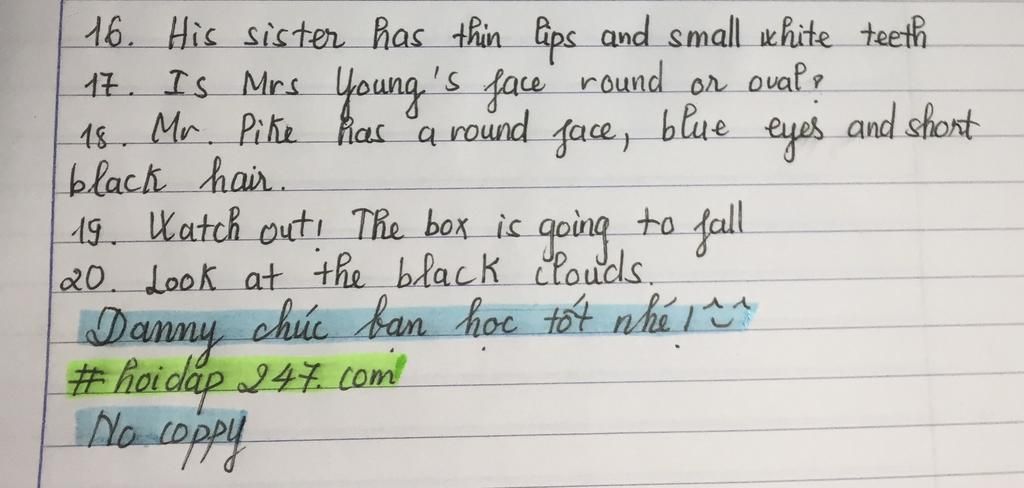 16. His sister has thin lips and small white teeth
17. Is Mrs Young's face round or oval?
18. Mr. Pike has a round face, blue eyes and short
black hair.
19. Watch out! The box is going to fall
20. Look at the black clouds.
Danny chúc bạn học tốt nhé! ^‿^
# hoidap 247. com
No coppy